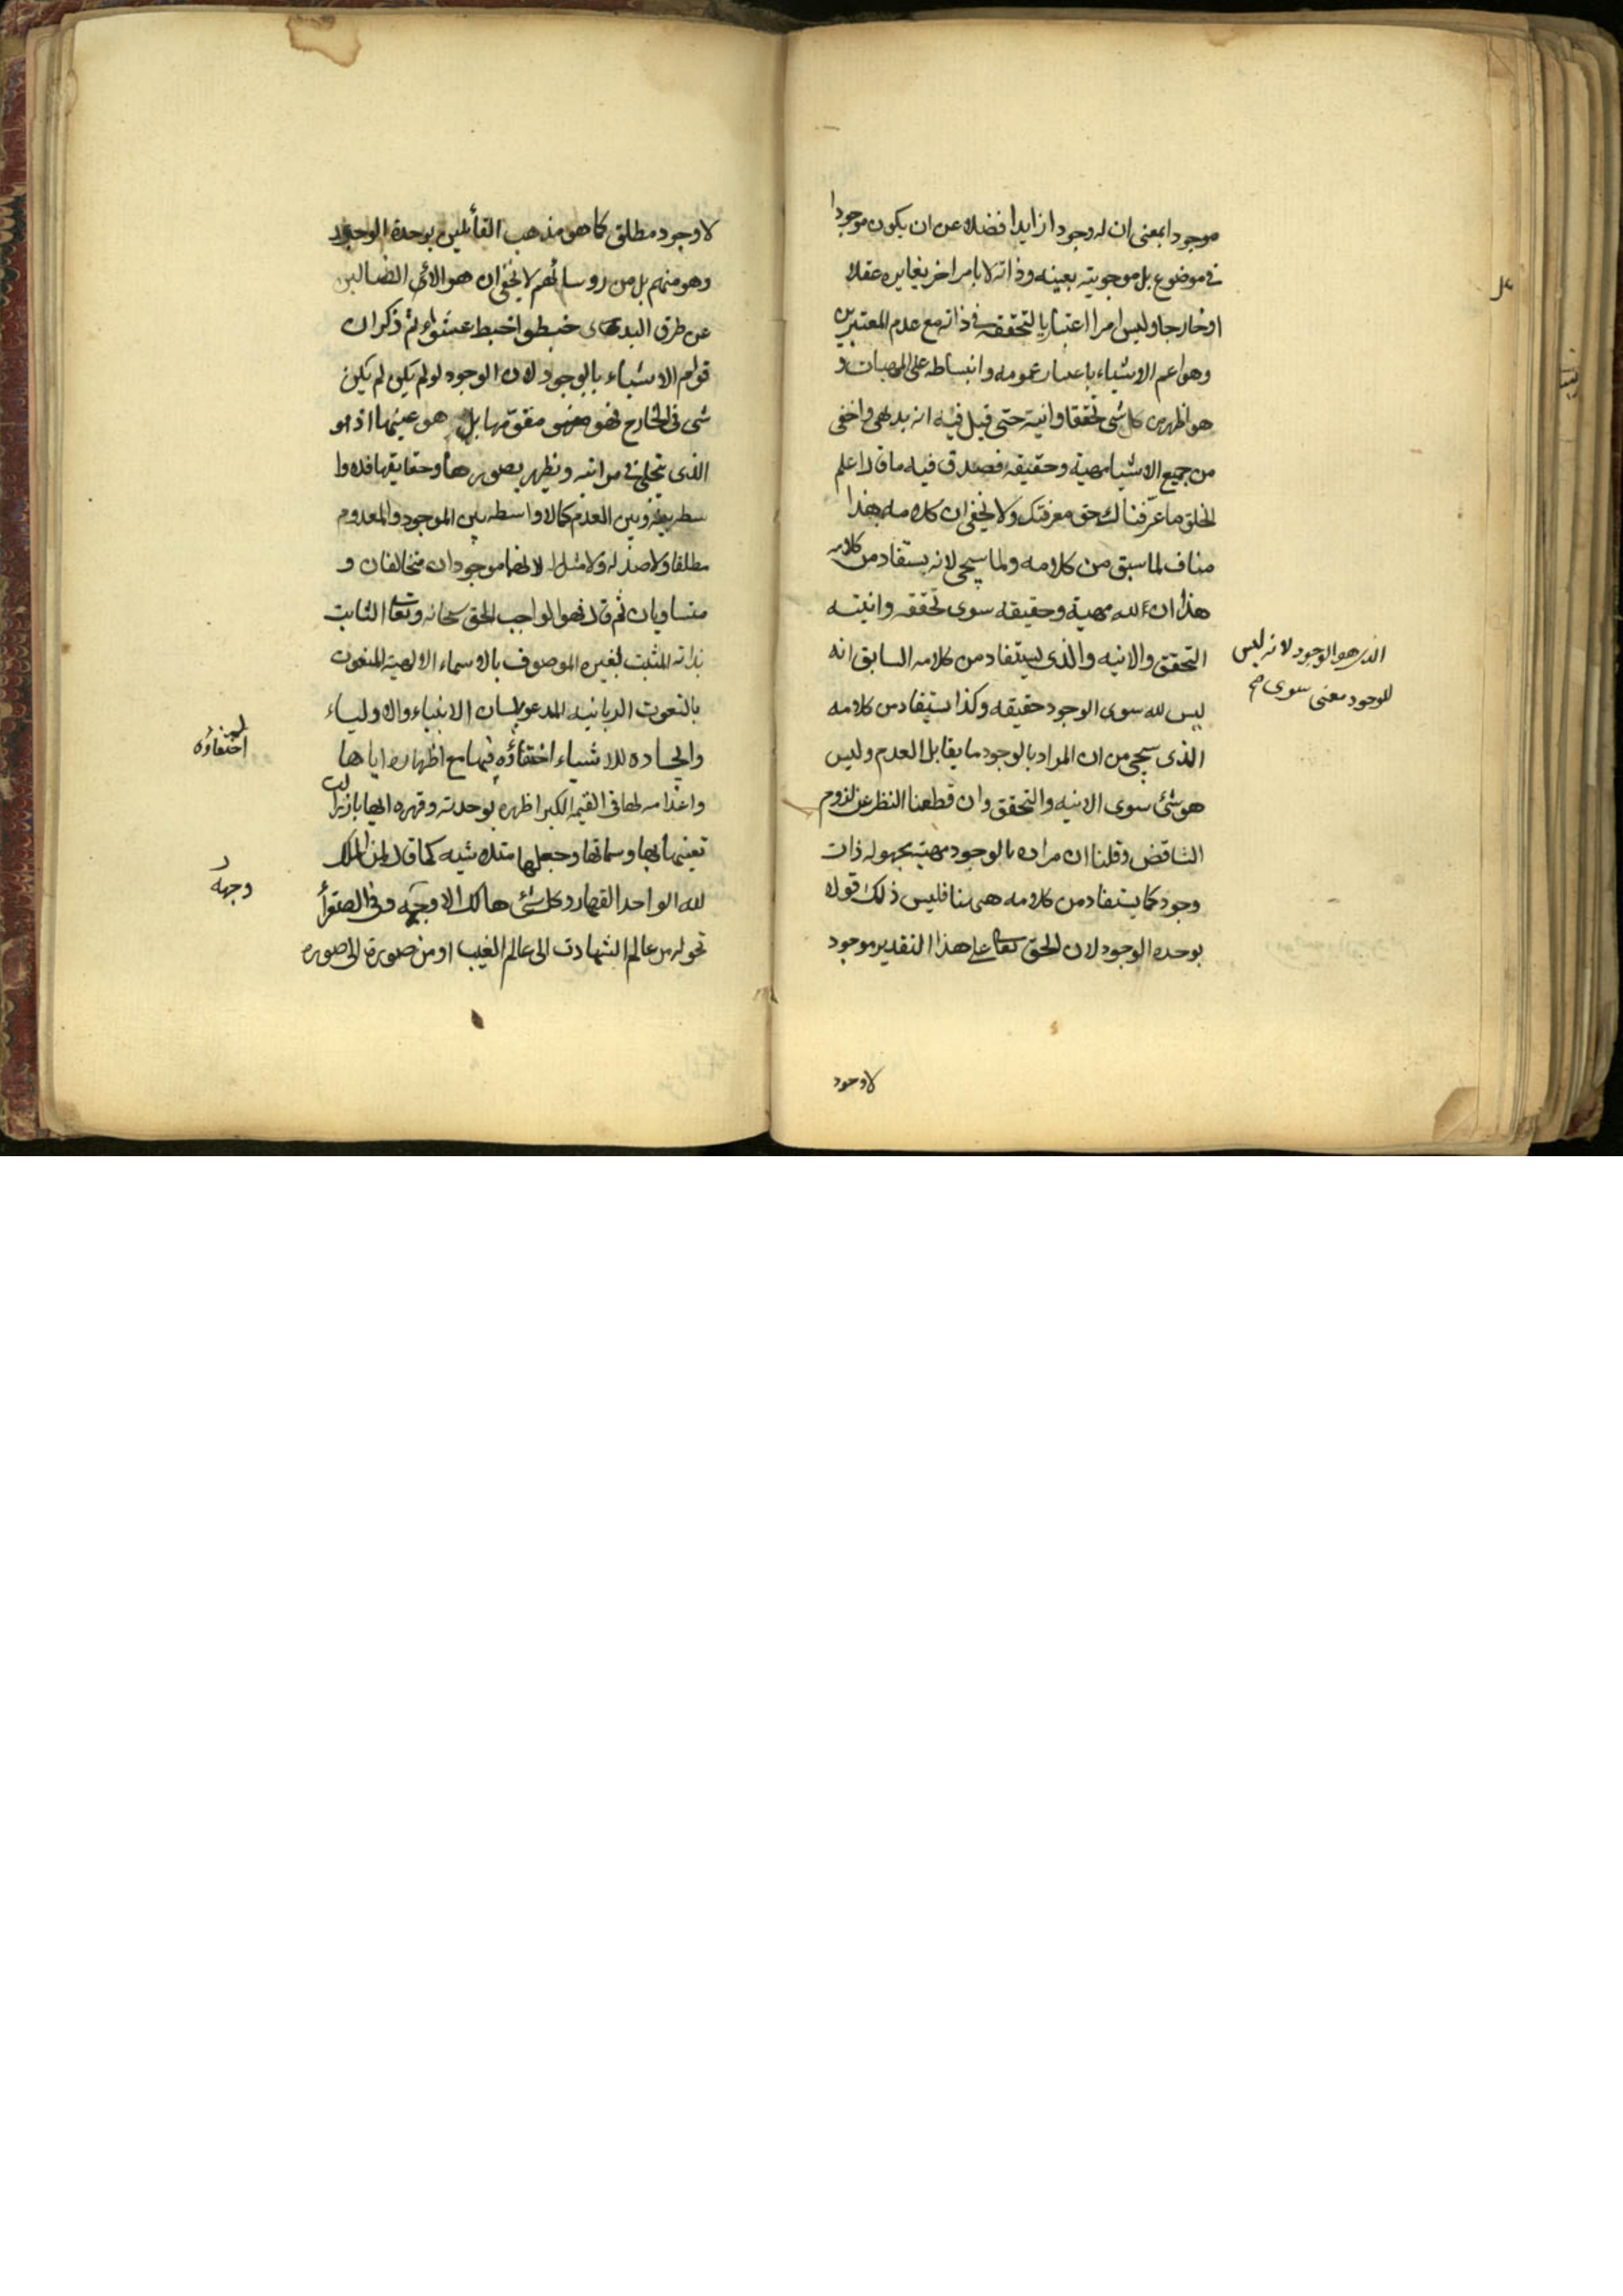 موجودا بمعنى ان له وجودا زايدا فضلا عن ان يكون موجودا
فى موضوع بل موجويته بعينه وذاته لا بامر اخر يغايره عقلا
او خارجا وليس امرا اعتباريا لتحققه فى ذاته مع عدم المعتبرين
وهو اعم الاشياء باعتبار عمومه وانبساطه على المهيات و
هو اظهر من كل شى تحققا وانية حتى قيل فيه انه بديهى واخفى
من جميع الاشيا مهية وحقيقة فصدق فيه ما قال اعلم
الخلق ما عرفناك حق معرفتك ولا يخفى ان كلامه بهذا
مناف لما سبق من كلامه ولما سيجى لانه يستفاد من كلامه
هذا ان لله مهية وحقيقه سوى تحققه وانيته
التحقق والانيه والذى يستفاد من كلامه السابق انه
الذى هو الوجود لانه ليس
للوجود معنى سوى صح
ليس لله سوى الوجود حقيقه وكذا يستفاد من كلامه
الذى سيجى من ان المراد بالوجود ما يقابل العدم وليس
هو شئ سوى الانيه والتحقق وان قطعنا النظر عن لزوم
التناقض وقلنا ان مراده بالوجود مهية مجهوله ذات
وجود كما يستفاد من كلامه هيهنا فليس ذلك قولا
بوحده الوجود لان الحق تعالى على هذا التقدير موجود
لا وجود
لا وجود مطلق كما هو مذهب القائلين بوحدة الوجود
وهو منهم بل من روسائهم لا يخفى ان هولائى الضالين
عن طرق الهدى خبطوا خبط عشواء ثم ذكر ان
قوام الاشياء بالوجود لان الوجود لو لم يكن لم يكن
شى فى الخارج فهو مقومها بل هو عينها اذ هو
الذى يتجلى فى مراتبه ويظهر بصورها وحقايقها فلا وا
سطه بينه وبين العدم كما لا واسطه بين الموجود والمعدوم
مطلقا ولا ضد له ولا مثل له لانهما موجودان متخالفان و
متساويان ثم قال فهو الواجب الحق سبحانه وتعالى الثابت
بذاته المثبت لغيره الموصوف بالاسماء الالهية المنعوت
بالنعوت الربانيه المدعو بلسان الانبياء والاولياء
وايجاده للاشياء اختفاؤه فيها مع اظهاره اياها
اختفاؤه
واعدامه لها فى القيمة الكبرا ظهره بوحدته وقهره اياها بازالت
تعيناتها وسماتها وجعلها متلاشيه كما قال لمن الملك
لله الواحد القهار وكل شئ هالك الا وجهه وفى الصغرا
وجهه
تحوله من عالم الشهادت الى عالم الغيب او من صورة الى صوره